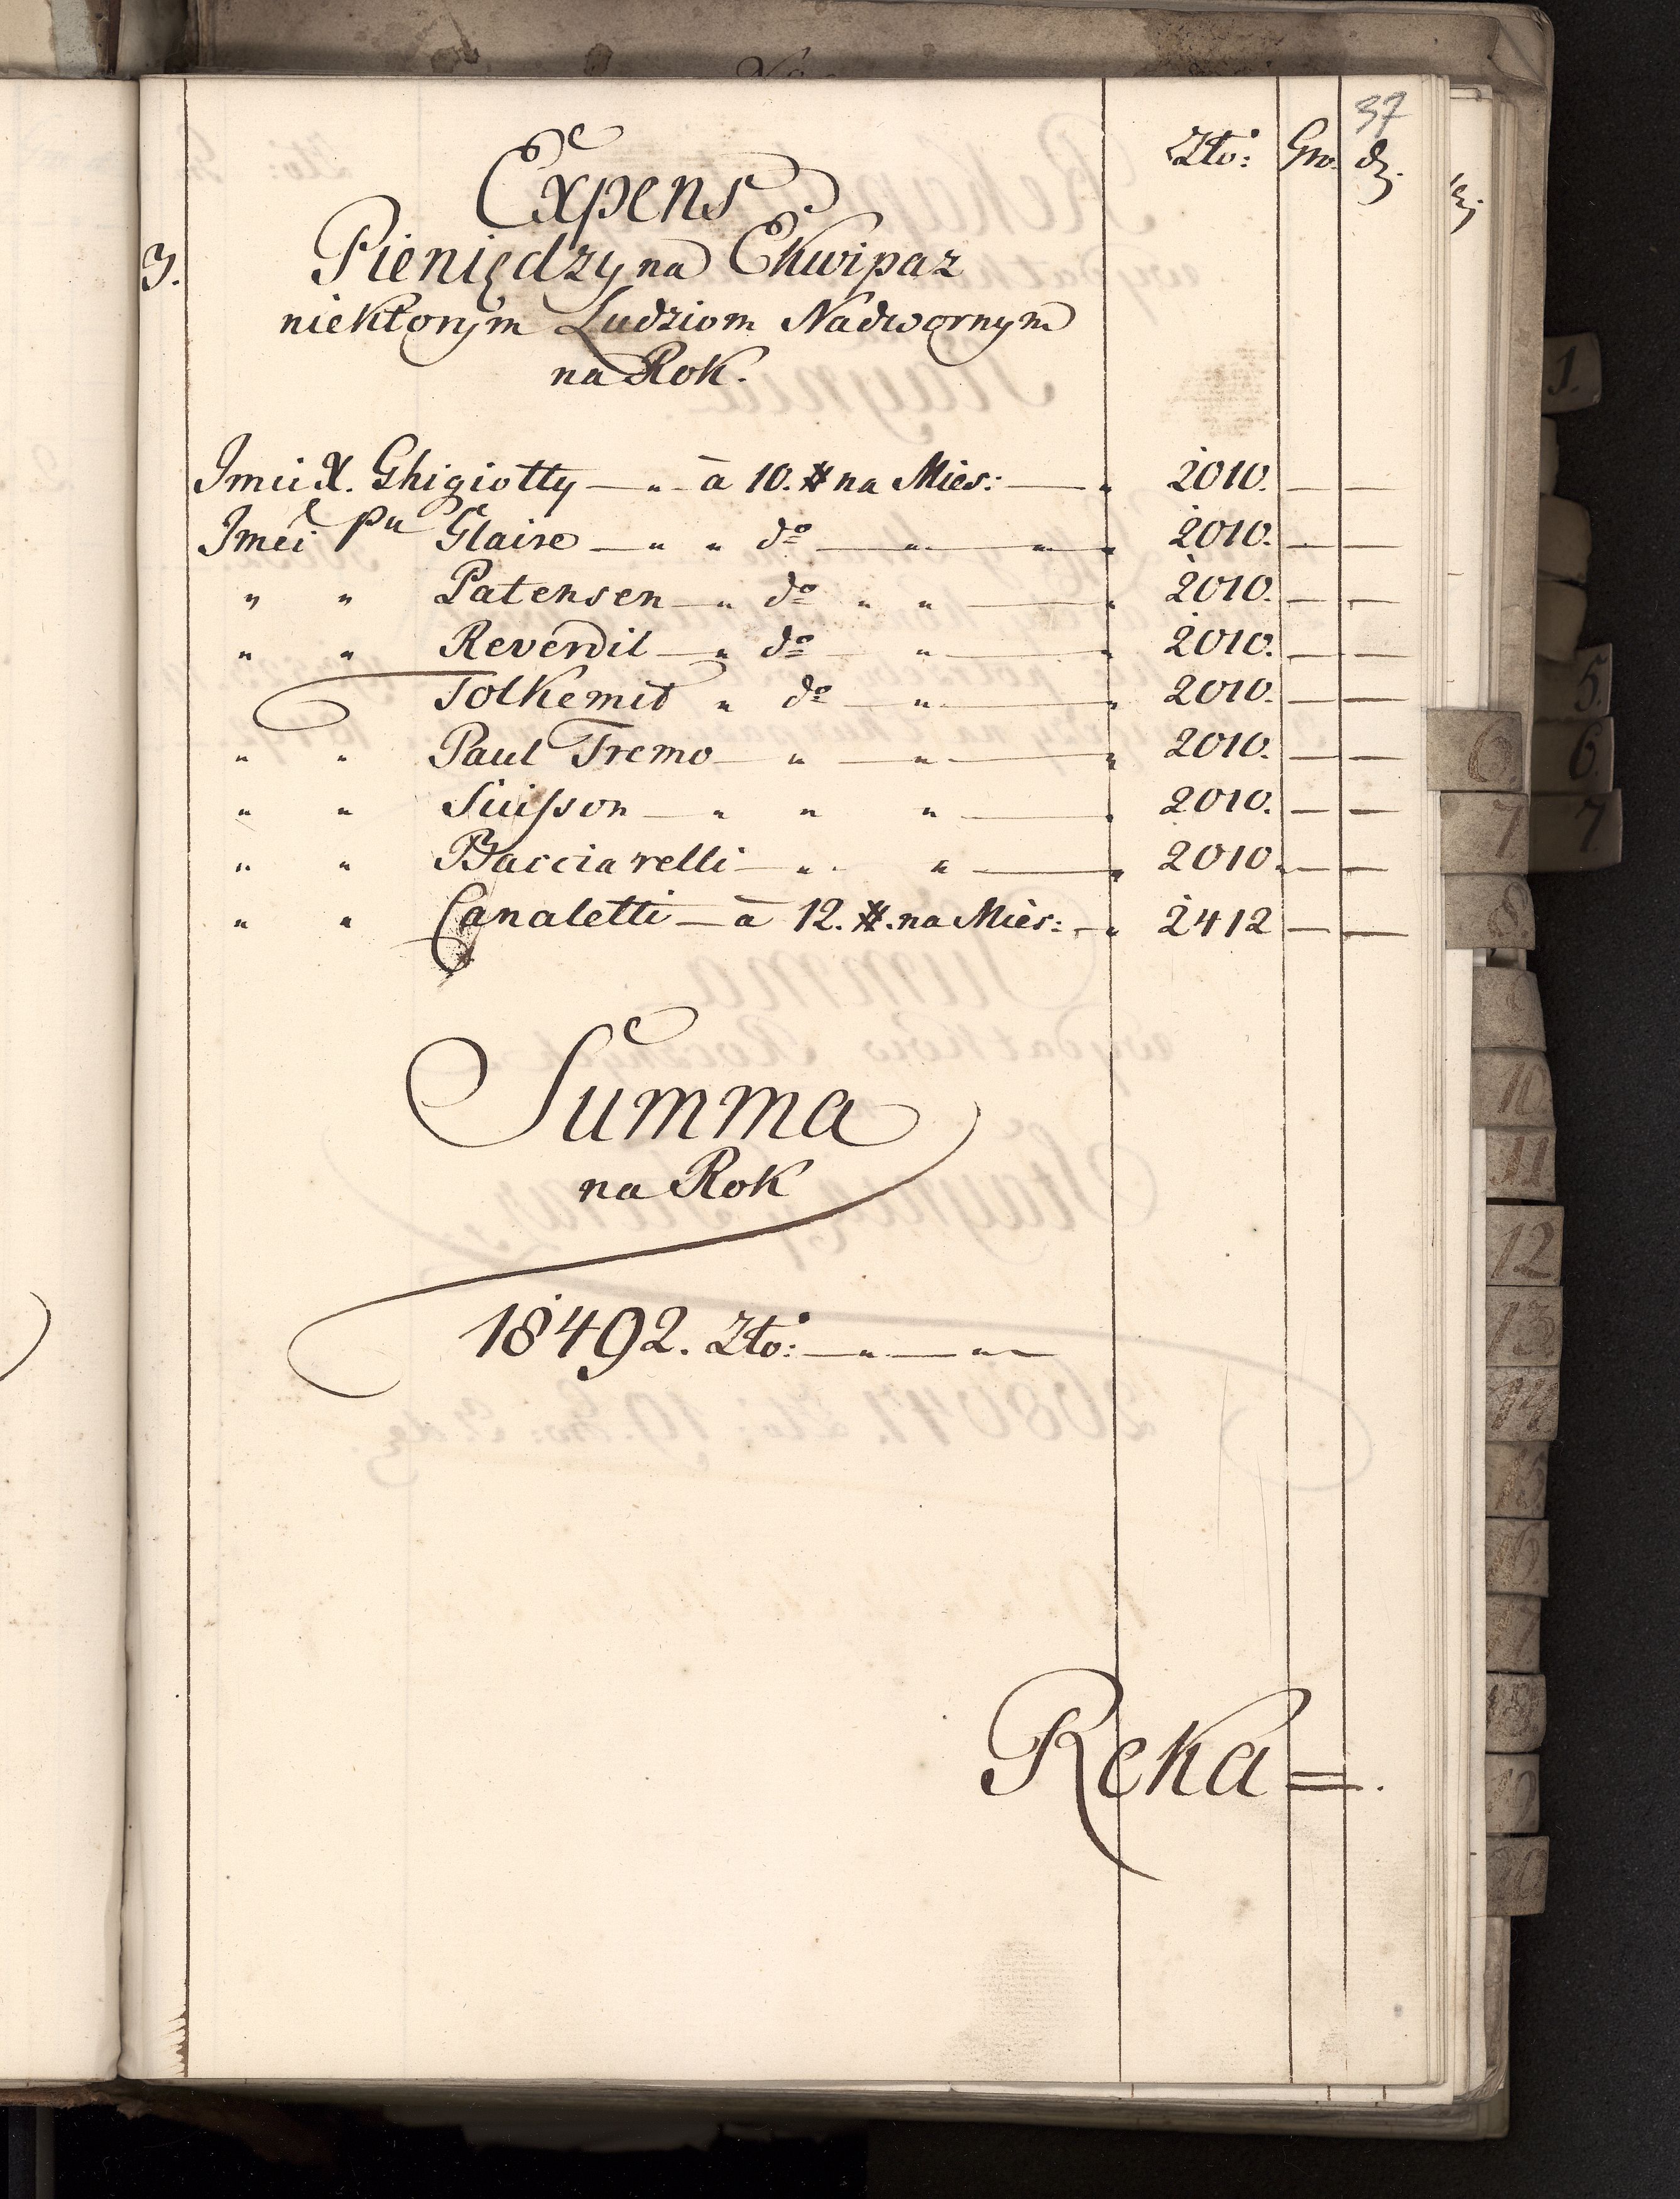 37
Złó: Gro. dz.
Expens
3. Pieniędzy na Ekwipaz
niektorym Ludziom Nadwornym
na Rok.
Jmci X. Ghigiotty — " — à 10. # na Mies: — " 2010. — —
Jmci Pu Glaire — " " do — " — " — " 2010. — —
" " Patensen — " do " " — " 2010. — —
" " Reverdil — " do — " — " 2010. — —
Tolkemit " do — " — " 2010. — —
" " Paul Tremo — " — " — " 2010. — —
" " Suisson — " " " — " 2010. — —
" " Bacciarelli — " " — " 2010. — —
" " Canaletti — à 12. #. na Mies: — " 2412 — —
Summa
na Rok
18492. Złó: — " — " —
Reka =.
1.
5.
6. 6.
7 7
8
9
10
11
12
13
14
15
16
17
18
19
20